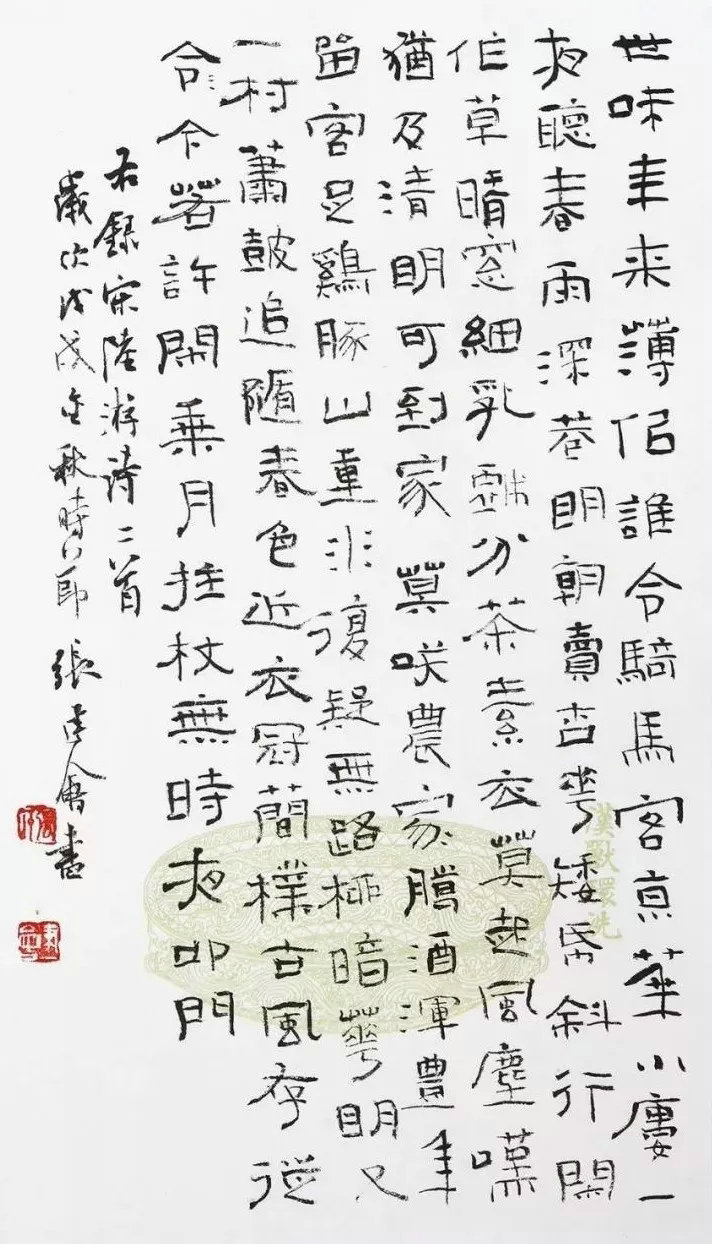 世味年来薄佀誰令騎馬客京華小廔一
夜聽春雨深巷明朝賣杏華矮帋斜行閑
作草晴窓細乳戲分茶素衣莫起風塵嘆
猶及清明可到家 莫咲農家臈酒渾豊年
留客足鷄豚山重水復疑無路柳暗華明又
一村蕭鼓追隨春色近衣冠簡樸古風存從
今今若許閑乘月拄杖無時夜叩門
右録宋陸游詩二首
歲次戊戌金秋時節 張書
漢獸環洗